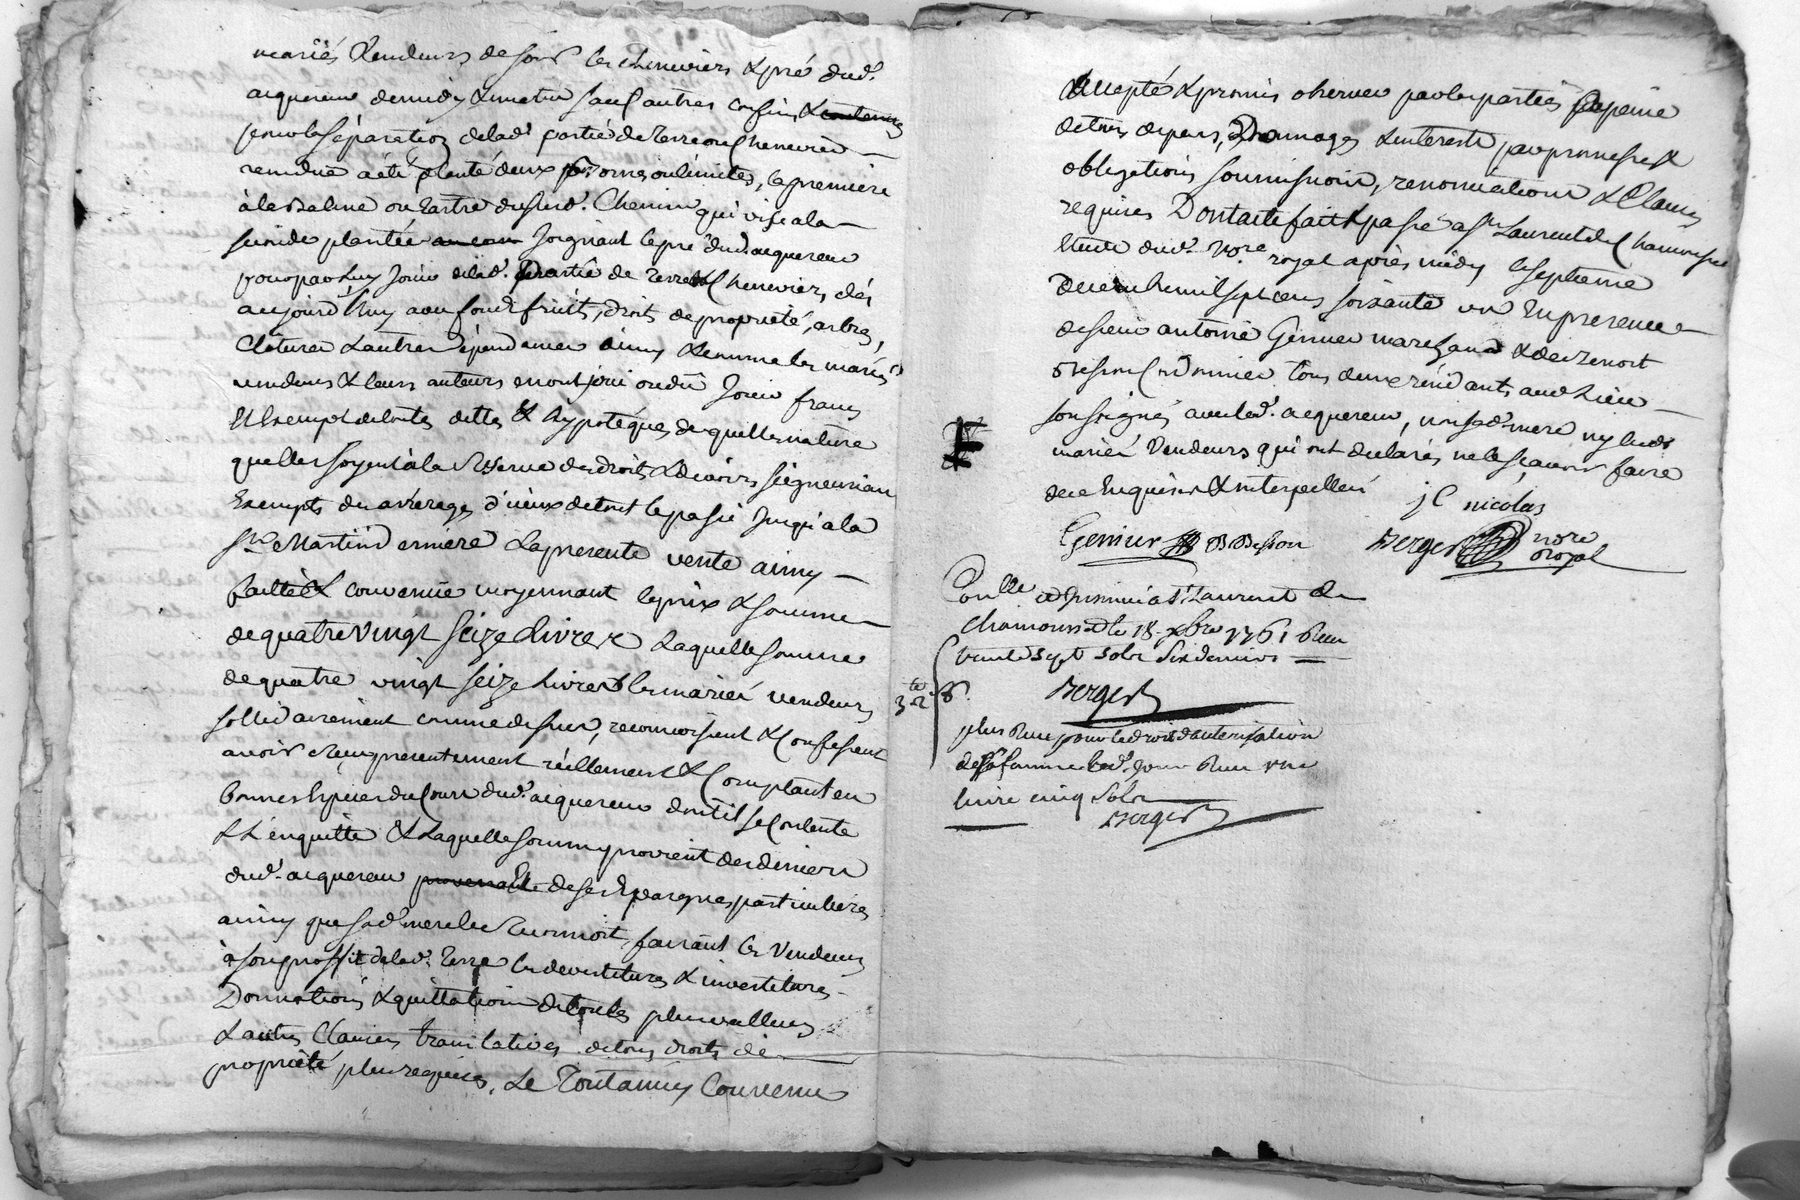 mariés Vendeurs de soir les cheneviers & pré dud.
acquereur de midy & matin sauf autres confins
pour la séparation de lad. partie de terre ou Chenevier
vendue a été planté deux bornes ou limites, la premiere
à la Baline ou tartre du susd. Chemin qui vise a la
seconde plantée joignant le pré dud. acquereur
pour par luy jouir de lad. partie de terre & Chenevier, dés
aujourd'huy a ou fonds fruits, droits de propriété, arbres,
clotures & autres dépendances ainsy & comme les mariés
vendeurs & leurs auteurs en ont joui ou dû jouir francs
& Exempt de toutes dettes & hypotéques de quelle nature
quelles soyent à la Reserve des droits & devoirs seigneuriaux
Exempts des arrérages d'iceux de tout le passé jusqu'a la
st Martin derniere La presente vente ainsy
faitte & convenüe moyennant le prix & somme
de quatre vingt seize Livres Laquelle somme
de quatre vingt seize Livres les mariés vendeurs
sollidairement comme dessus, reconnoissent & Confessent
avoir Reçu presentement réellement & Comptant en
bonnes Especes du Cours dud. acquereur dont il se Contente
& L'enquitte & Laquelle somme provient des deniers
dud. acquereur de ses Epargnes particulieres
ainsy que sad. mere le Reconnoit, faisant les Vendeurs
à son proffit de lad. Terre les devestitures & investitures
Donnations & quittations de toutes plus vallues
& autres Clauses translatives de tous droits de
propriété plus requises. Le Tout ainsy Convenu
accepté & promis observer par les parties a peine
de tous depens, Dommages & interests par promesses &
obligations soumissions, renonciations & Clauses
requises Dont acte fait & passé a St Laurent de Chamousset
Etude dud. No.re royal après midy le septieme
decembre mil sept cens soixante un En presence
de sieur antoine Genier marchand & de Benoit
tous deux résidants aud. Lieu
soussignés avec led. acquereur, non sad. mere ny lesds
mariés Vendeurs qui ont declarés ne le sçavoir faire
de ce Enquis & interpellés
j C nicolas
Genier B Besson Berger no.re royal
Con.llé à St Laurent de
Chamousset le 18 xbre 1761 Reçu
trente sept sols six deniers
Berger
plus Reçu pour le droit d'autorisation
de la femme led. jour Reçu une
livre cinq sols
Berger